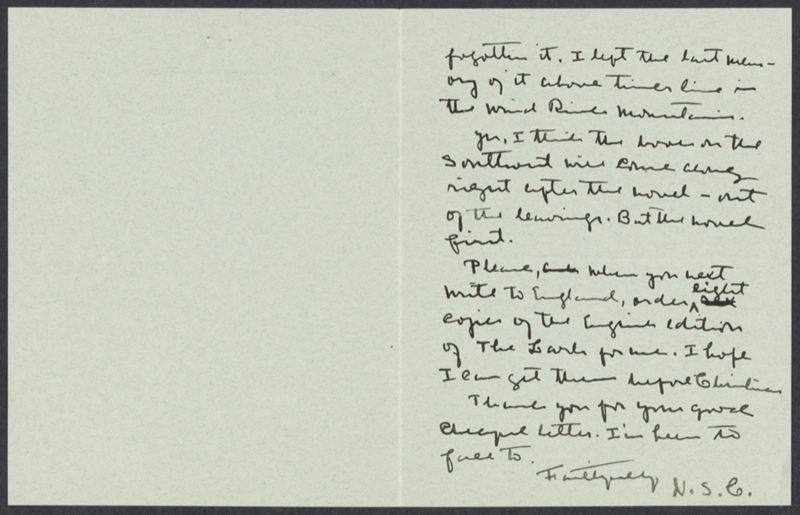 forgotten it. I left the last mem-
ory of it above timber line in
the Wind River Mountains.
Yes, I think the book on the
Southwest will come along
right after the novel - out
of the leavings. But the novel
first.
Please, and when you next
write to England, order eight
copies of the English edition
of The Lark for me. I hope
I can get them before Christmas
Thank you for your good
letter. I'm keen to
fall to.
Faithfully
W. S. C.